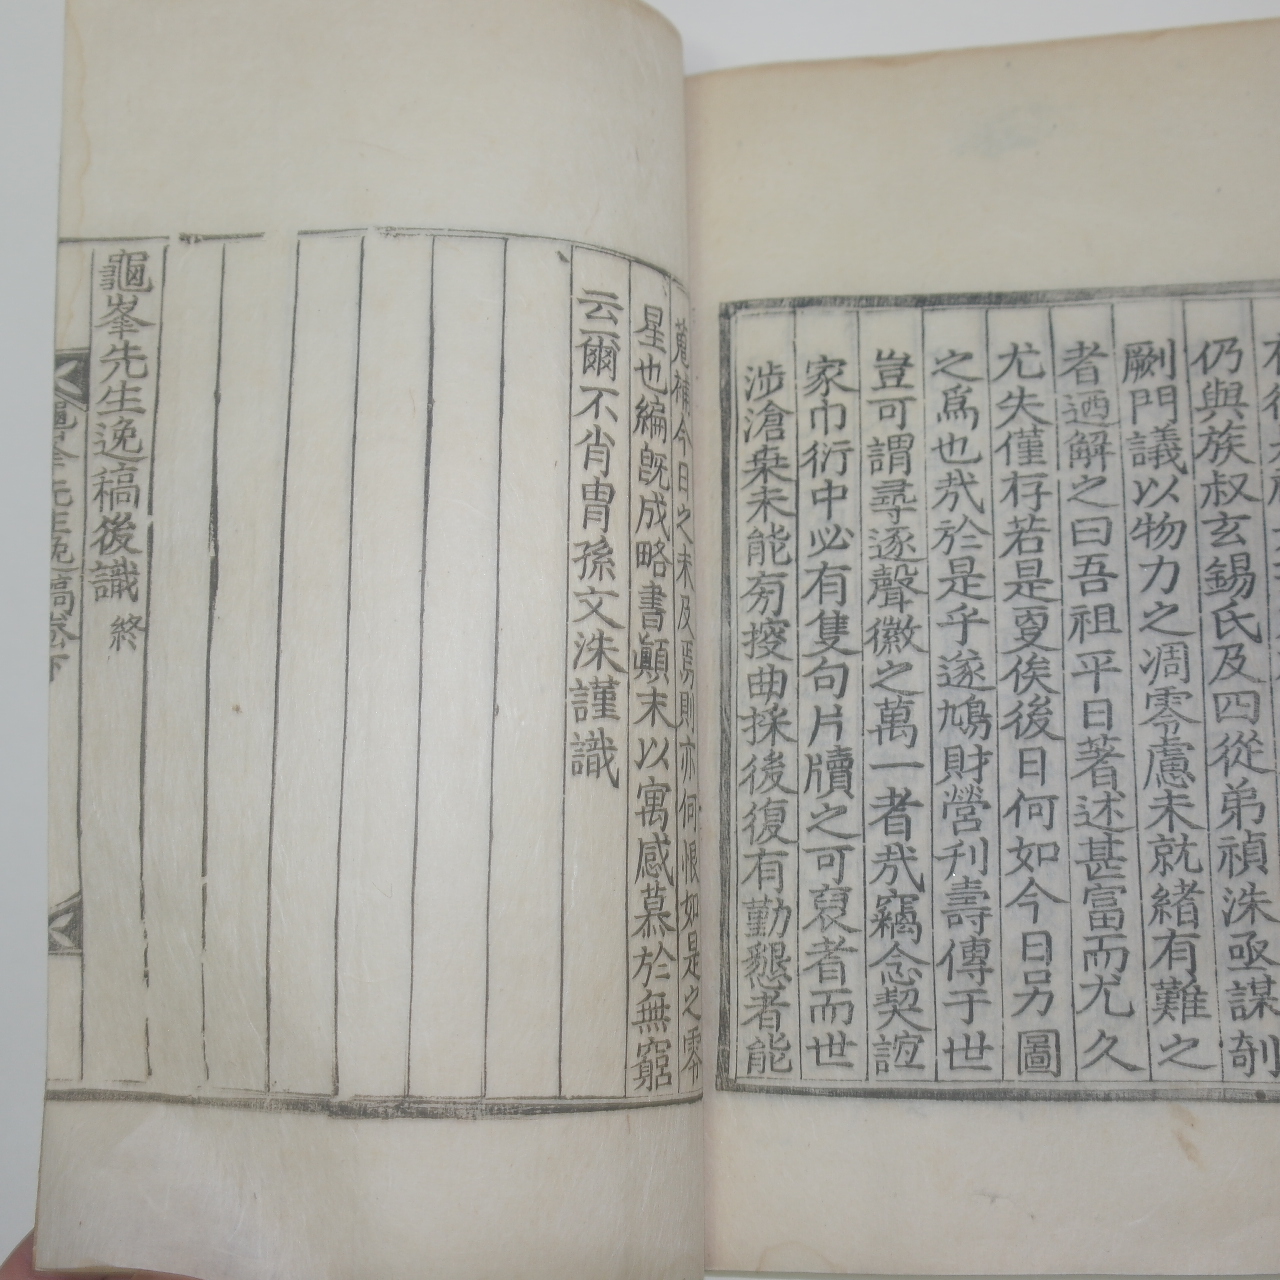 仍與族叔玄錫氏及四從弟禎洙亟謀剞
劂門議以物力之凋零慮未就緒有難之
者迺解之曰吾祖平日著述甚富而尤久
尤失僅存若是更俟後日何如今日另圖
之爲也㦲於是乎遂鳩財營利壽傳于世
豈可謂尋逐聲徽之萬一者㦲竊念契誼
家巾衍中必有隻句片牘之可裒者而世
涉滄桒未能旁搜曲採後復有勤懇者能
蒐補今日之未及焉則亦何恨如是之零
星也編旣成略書顚末以寓感慕於無窮
云爾不肖胄孫文洙謹識
龜峯先生逸稿後識 終
龜峯先生逸稿卷下